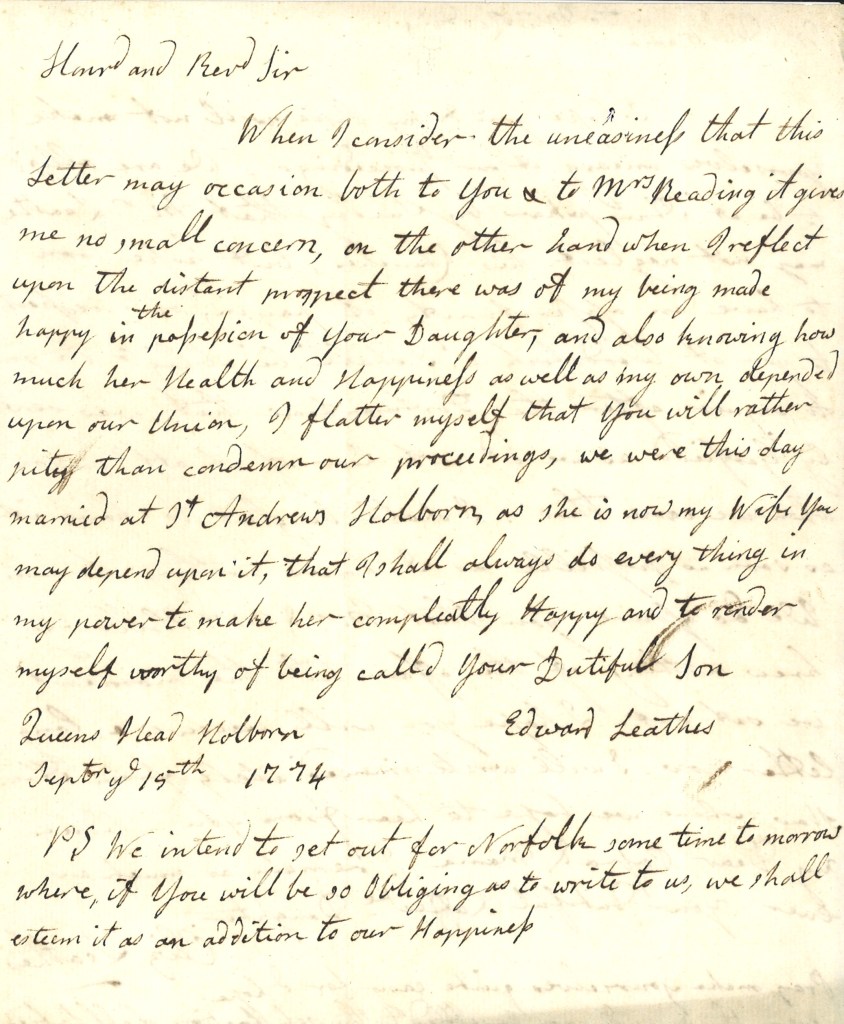 Honrd and Revd Sir
When I consider the uneasiness that this
Letter may occasion both to You & to Mrs Reading it gives
me no small concern, on the other hand when I reflect
upon the distant prospect there was of my being made
happy in the possession of your Daughter, and also knowing how
much her Health and Happiness as well as my own depended
upon our Union, I flatter myself that you will rather
pity than condemn our proceedings, we were this day
married at St Andrews Holborn, as she is now my Wife You
may depend upon it, that I shall always do every thing in
my power to make her compleatly Happy and to render
myself worthy of being calld Your Dutiful Son
Queens Head Holborn Edward Leathes
Septbr ye 15th 1774
PS We intend to set out for Norfolk some time to morrow
where, if You will be so Obliging as to write to us, we shall
esteem it as an addition to our Happiness